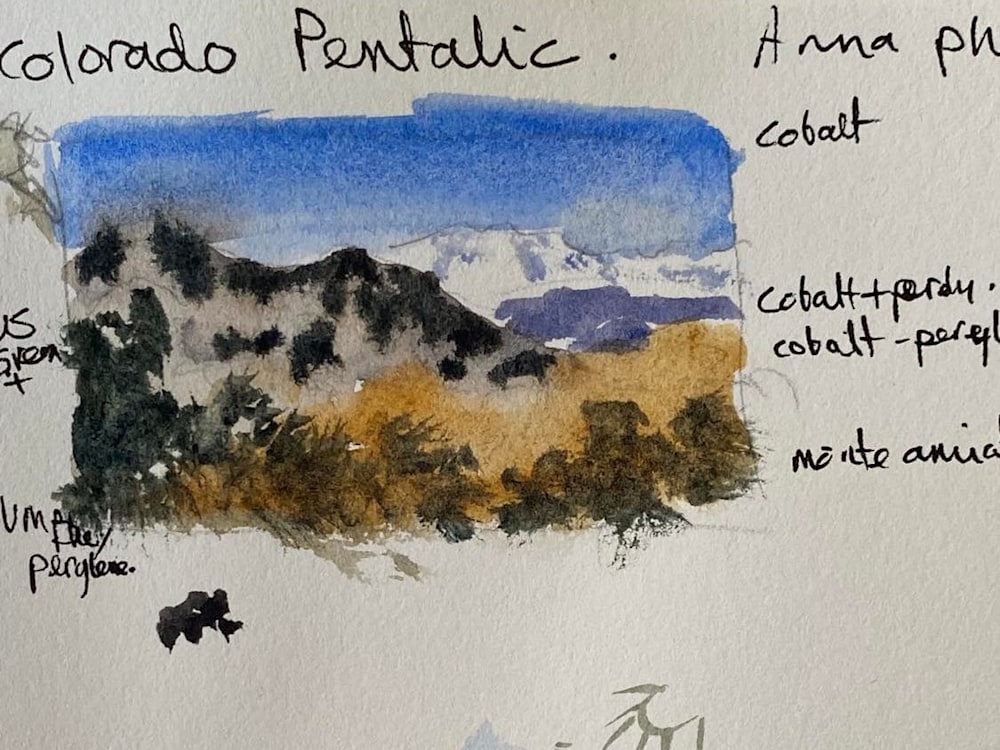 Colorado Pentalic.
Anna ph
cobalt
cobalt + perdy.
cobalt - peryl
monte amia
us
Green
+
UM
perylene.